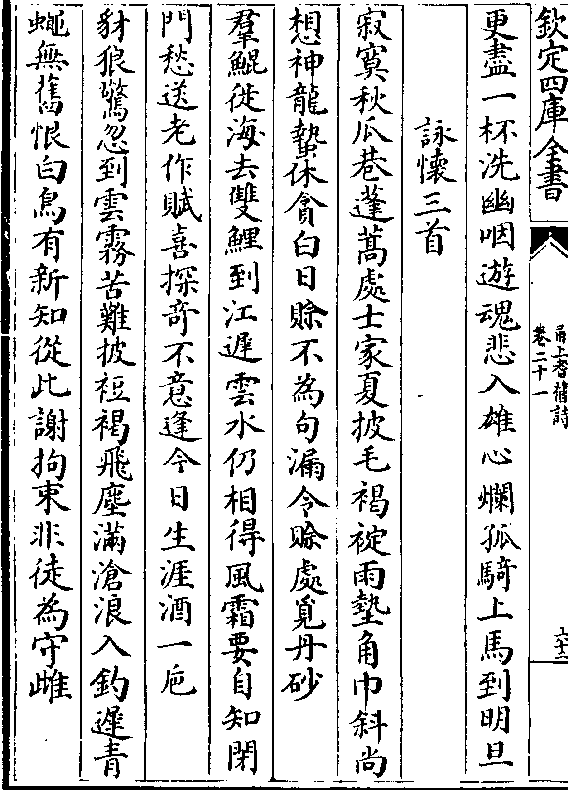 欽定四庫全書
甬上耆舊詩
卷二十一
更盡一杯洗幽咽遊魂悲入雄心爛孤騎上馬到明旦
詠懷三首
寂寞秋瓜巷蓬蒿處士家夏披毛褐䘺雨墊角巾斜尚
想神龍蟄休貪白日賒不為句漏令賒處覓丹砂
羣鯤從海去雙鯉到江遲雲水仍相得風霜要自知閉
門愁送老作賦喜探竒不意逢今日生涯酒一巵
豺狼驚忽到雲霧苦難披裋褐飛塵滿滄浪入釣遲青
蠅無舊恨白鳥有新知從此謝拘束非徒為守雌